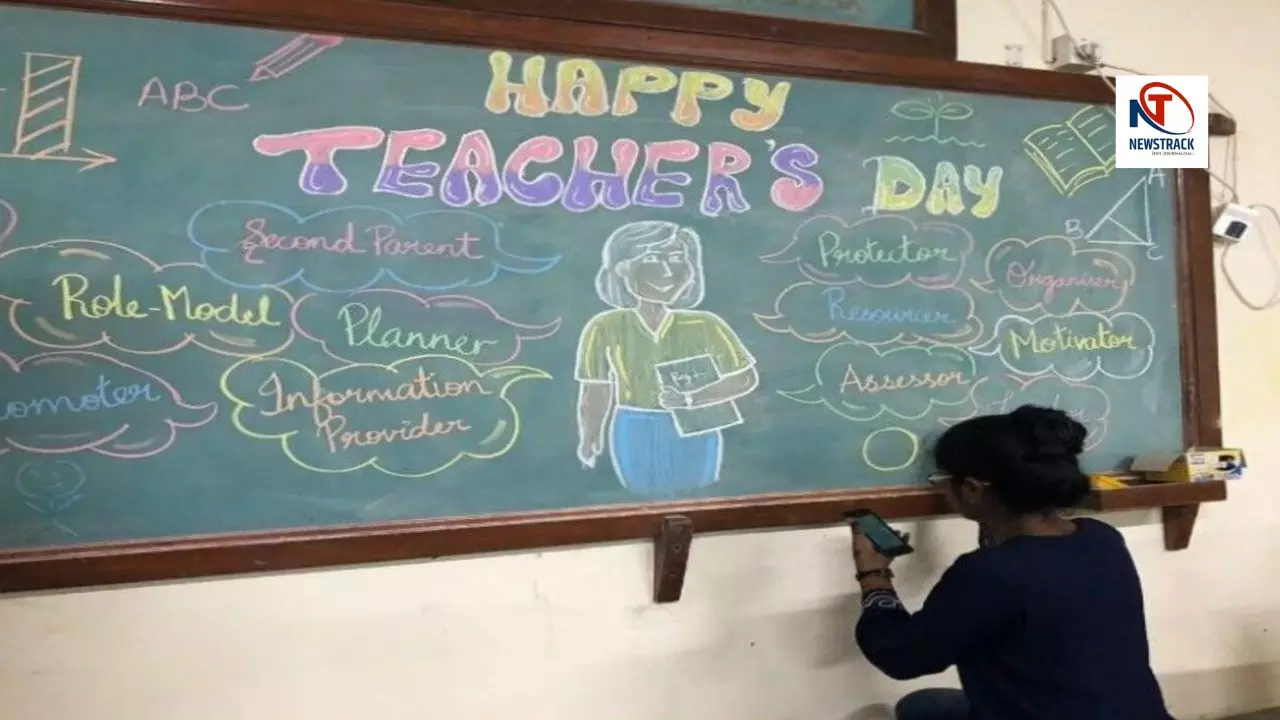 ABC
HAPPY
TEACHER'S DAY
Second Parent
Role-Model
Planner
omoter
Information
Provider
Protector
Organiser
Resourcer
Motivator
Assessor
A
B
C
NT
NEWSTRACK
JUST JOURNALISM...